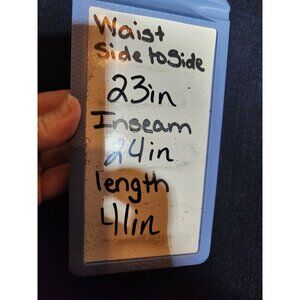 Waist
side to side
23in
Inseam
24in
length
41in